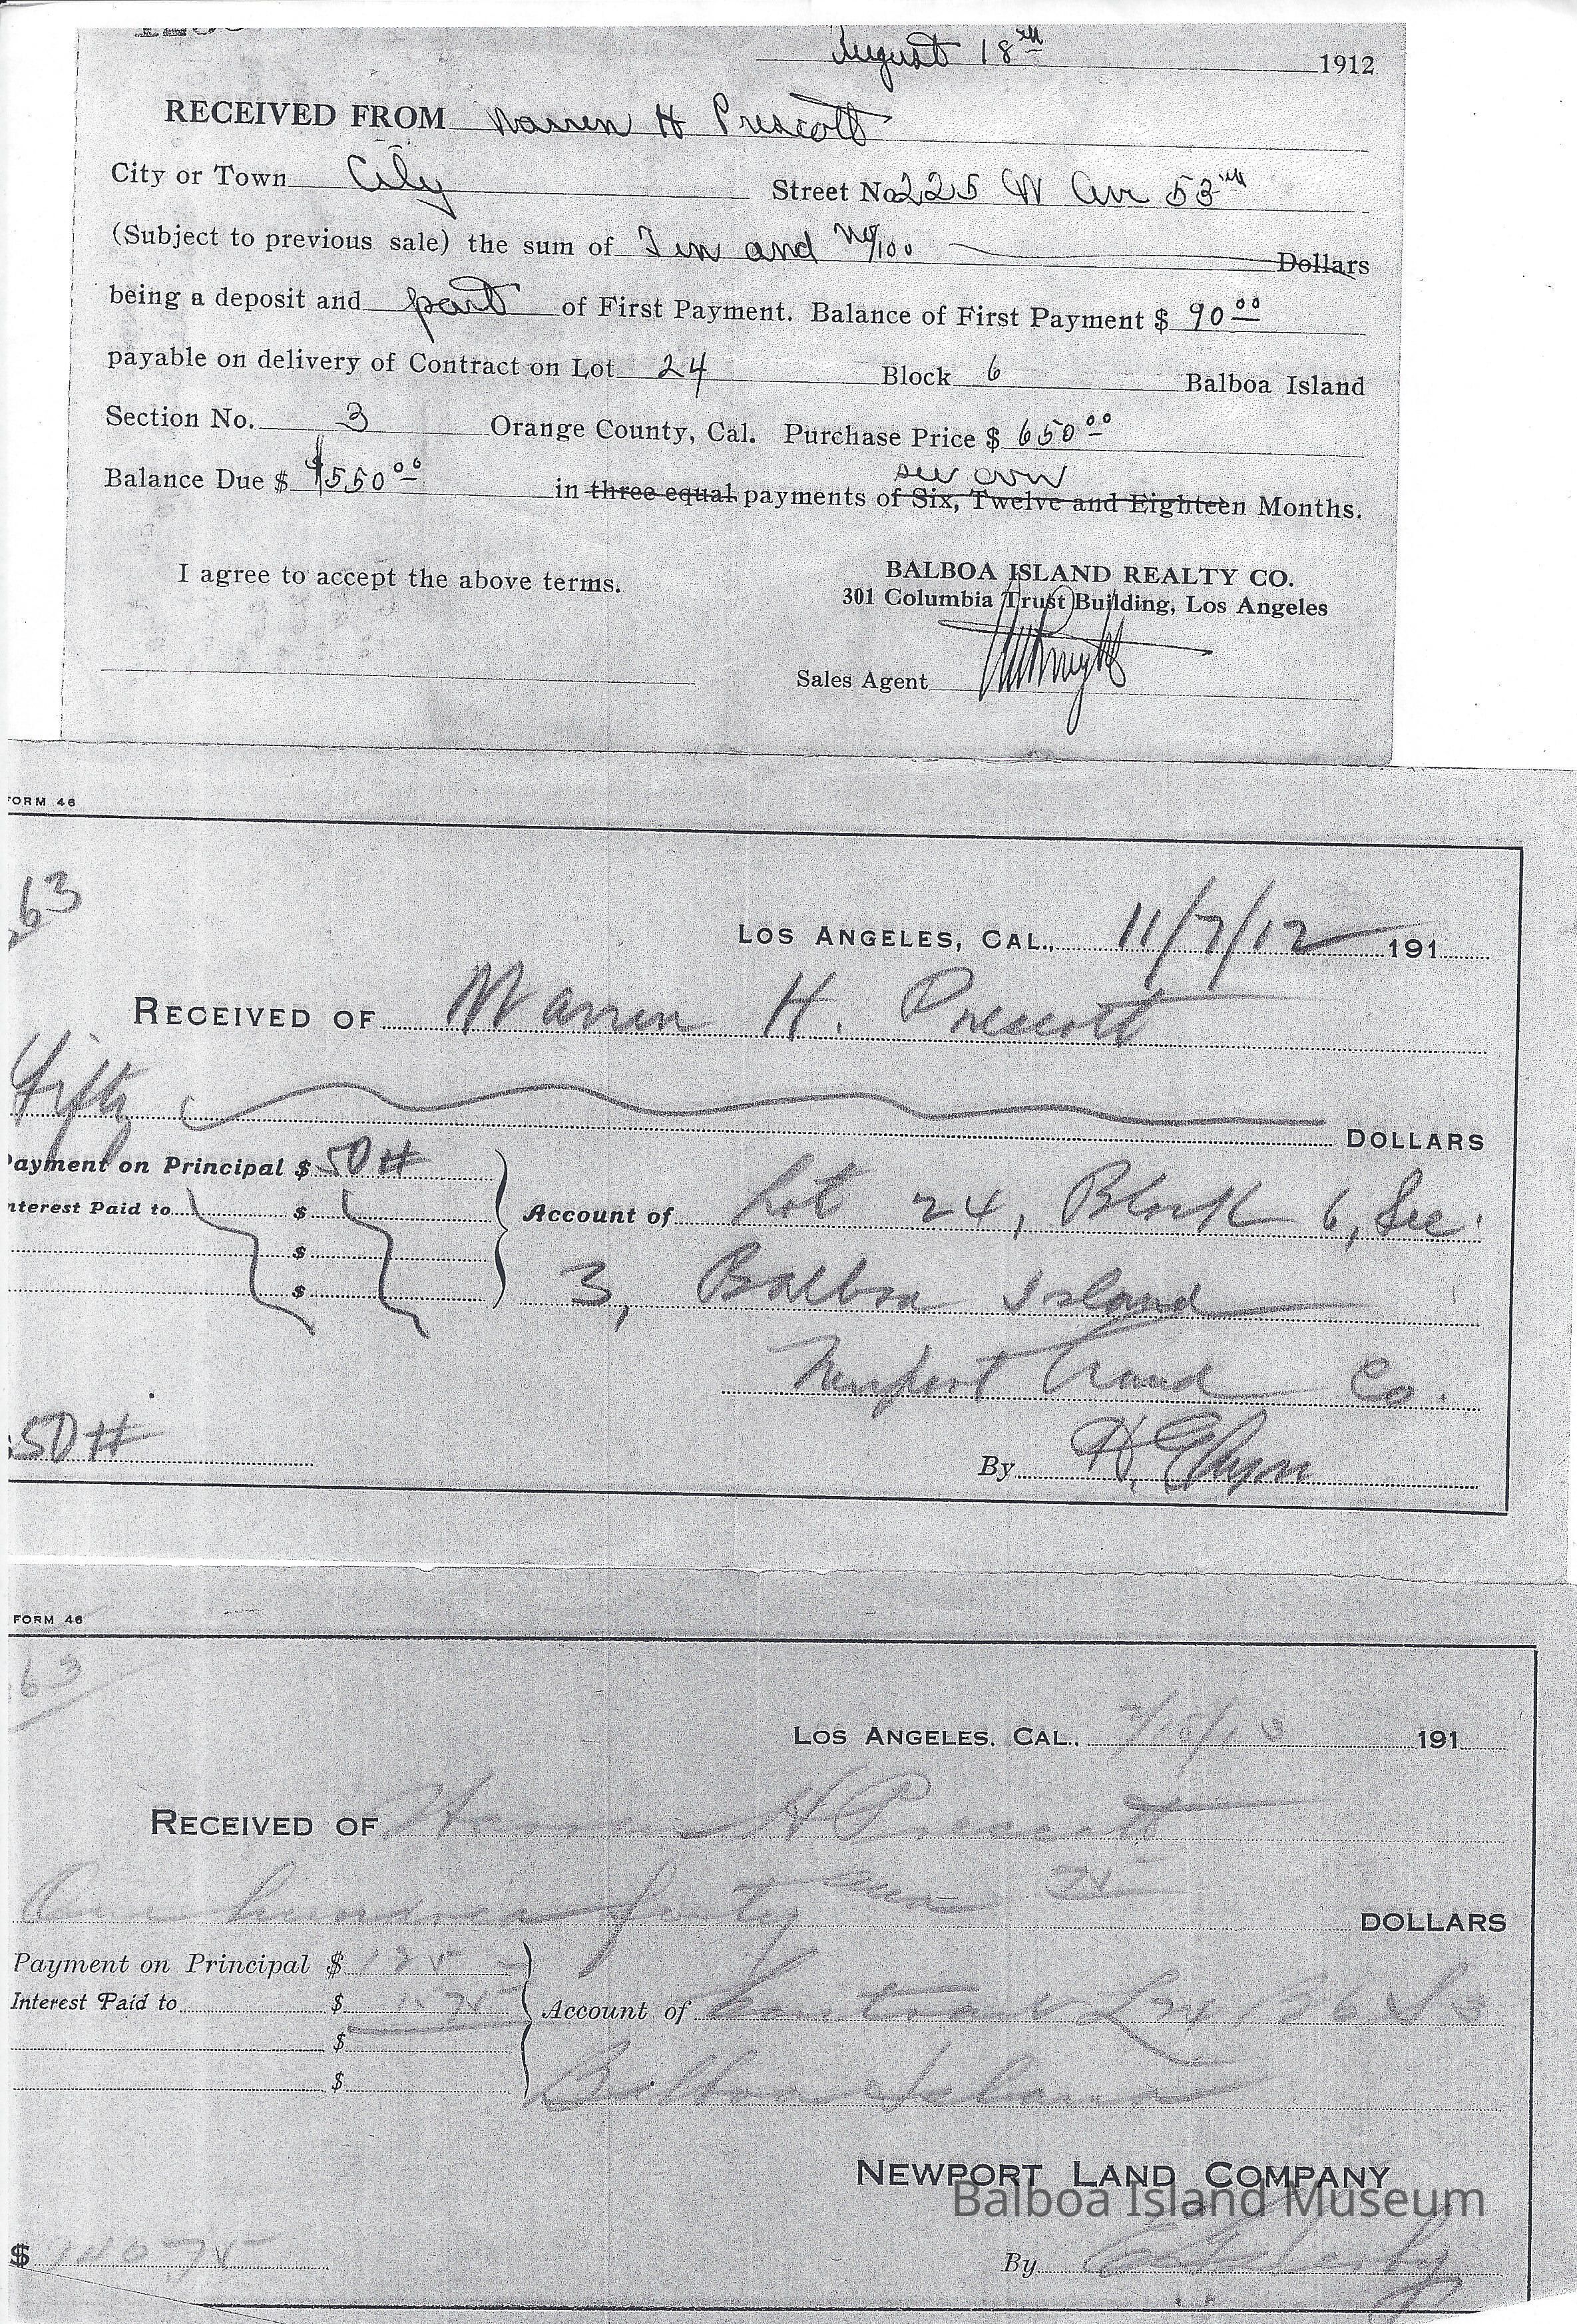 August 18th 1912
RECEIVED FROM Warren H Prescott
City or Town City Street No. 225 W Ave 53rd
(Subject to previous sale) the sum of Ten and no/100 Dollars
being a deposit and part of First Payment. Balance of First Payment $ 90 00
payable on delivery of Contract on Lot 24 Block 6 Balboa Island
Section No. 3 Orange County, Cal. Purchase Price $ 650 00
Balance Due $ $550 00 in three equal payments of Six, Twelve and Eighteen Months.
I agree to accept the above terms.
BALBOA ISLAND REALTY CO.
301 Columbia Trust Building, Los Angeles
Sales Agent
FORM 46
63
LOS ANGELES, CAL., 11/7/12 191
RECEIVED OF Warren H. Prescott
Fifty DOLLARS
Payment on Principal $ 50 #
Interest Paid to $ Account of Lot 24, Block 6, Sec.
$
$ 3, Balboa Island
Newport Land Co.
50 #
By
FORM 46
63
LOS ANGELES, CAL., 191
RECEIVED OF Warren H Prescott
One hundred forty and 75 DOLLARS
Payment on Principal $ 125
Interest Paid to $ 75 Account of Contract L 24 B 6 S 3
$
$ Balboa Island
NEWPORT LAND COMPANY
Balboa Island Museum
$ 140 75
By